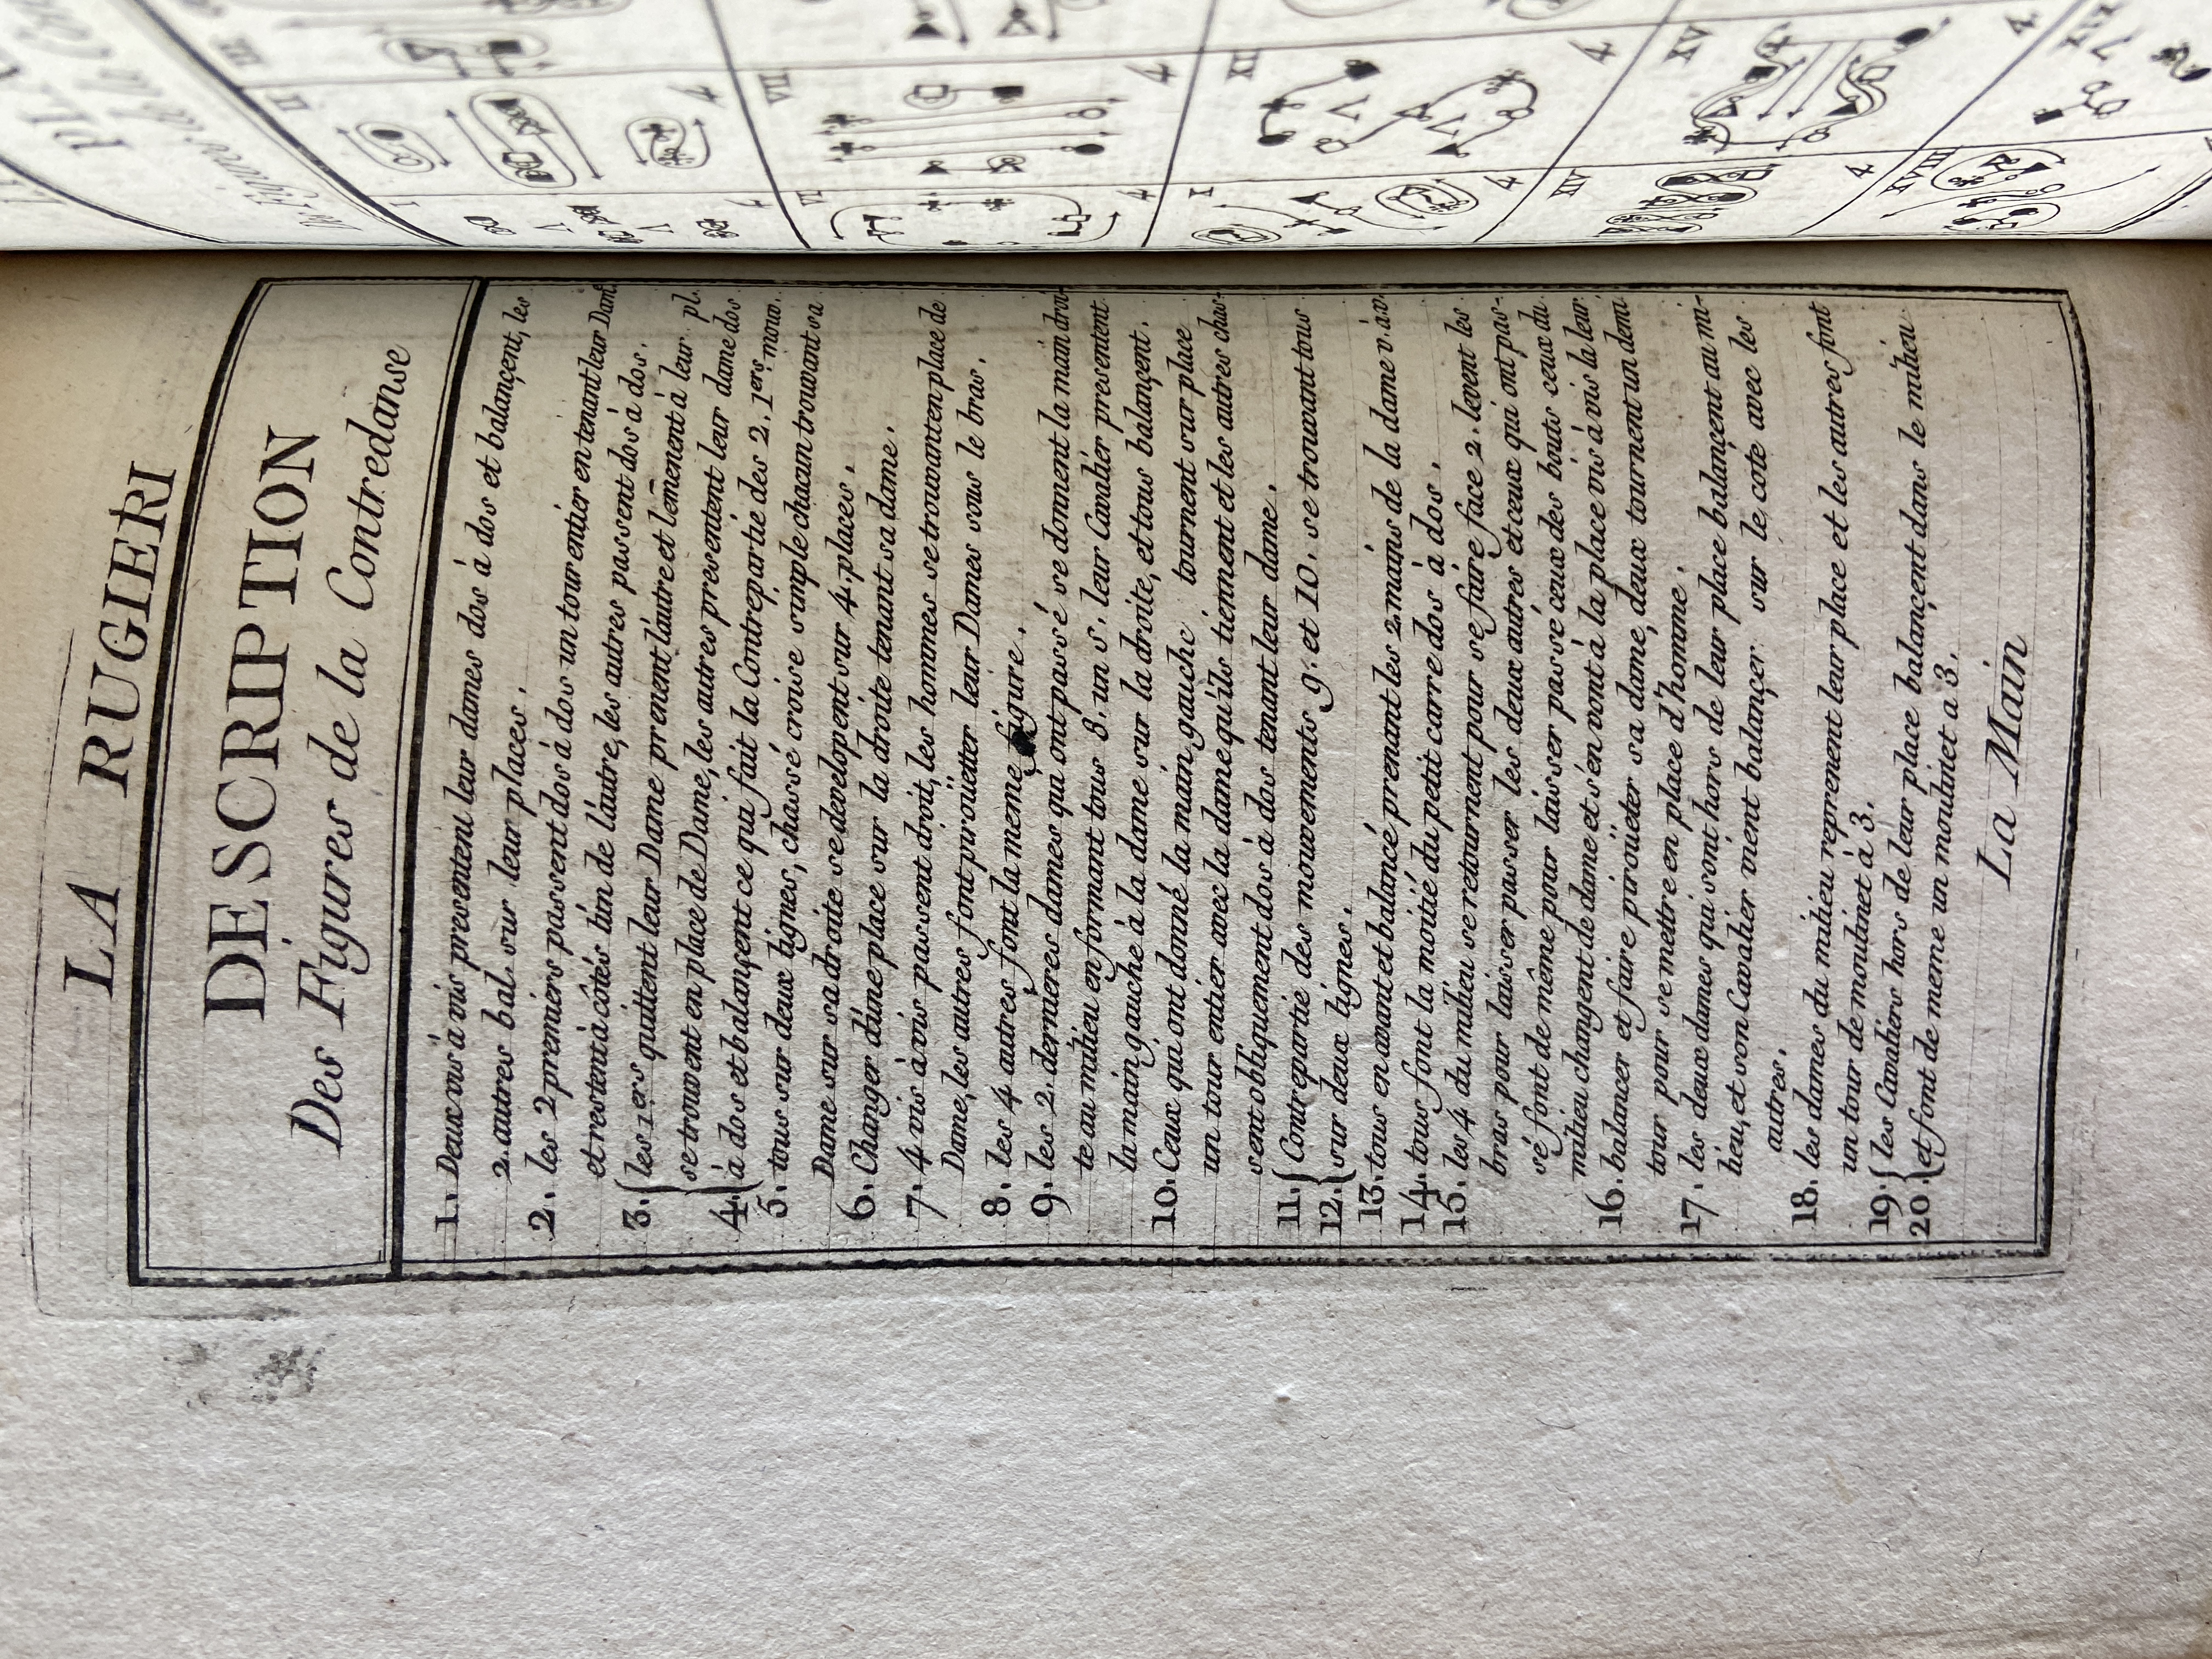 LA RUGIERI
DESCRIPTION
Des Figures de la Contredanse
1. Deux vis à vis presentent leur dames dos à dos et balançent, les
2. autres bal. sur leur places.
2. les 2 premiers passent dos à dos un tour entier en tenant leur Dam.
et restent à côtés l'un de l'autre, les autres passent dos à dos.
3. les 1ers quittent leur Dame prenent l'autre et l'emènent à leur pl.
se trouvent en place de Dame, les autres presentent leur dame dos
4. à dos et balançent ce qui fait la Contrepartie des 2. 1ers mouv.
5. tous sur deux lignes, chassé croisé simple chacun trouvant sa
Dame sur sa droite se developent sur 4. places.
6. Changer d'une place sur la droite tenant sa dame.
7. 4 vis à vis passent droit, les hommes se trouvant en place de
Dame, les autres font pirouëtter leur Dames sous le bras.
8. les 4 autres font la meme figure.
9. les 2. dernieres dames qui ont passé se donnent la main droi-
te au milieu en formant tous 8. un s. leur Cavalier presentent
la main gauche à la dame sur la droite, et tous balançent.
10. Ceux qui ont donné la main gauche tournent sur place
un tour entier avec la dame qu'ils tiennent et les autres chas-
sent obliquement dos à dos tenant leur dame.
11. Contrepartie des mouvements 9. et 10. se trouvant tous
12. sur deux lignes.
13. tous en avant et balancé prenant les 2 mains de la dame v. à v.
14. tous font la moitié du petit carré dos à dos.
15. les 4 du milieu se retournent pour se faire face 2. levent les
bras pour laisser passer les deux autres et ceux qui ont pas-
sé font de même pour laisser passé ceux des bouts ceux du
milieu changent de dame et s'en vont à la place vis à vis la leur.
16. balancer et faire pirouëtter sa dame, deux tournent un demi
tour pour se mettre en place d'homme.
17. les deux dames qui sont hors de leur place balançent au mi-
lieu, et son Cavalier vient balançer sur le coté avec les
autres.
18. les dames du milieu reprenent leur place et les autres font
un tour de moulinet à 3.
19. les Cavaliers hors de leur place balançent dans le milieu
20. et font de meme un moulinet a 3.
La Main
I
II
III
4
VI
VII
4
4
XI
4
4
XIV
XV
4
4
XVIII
XIX